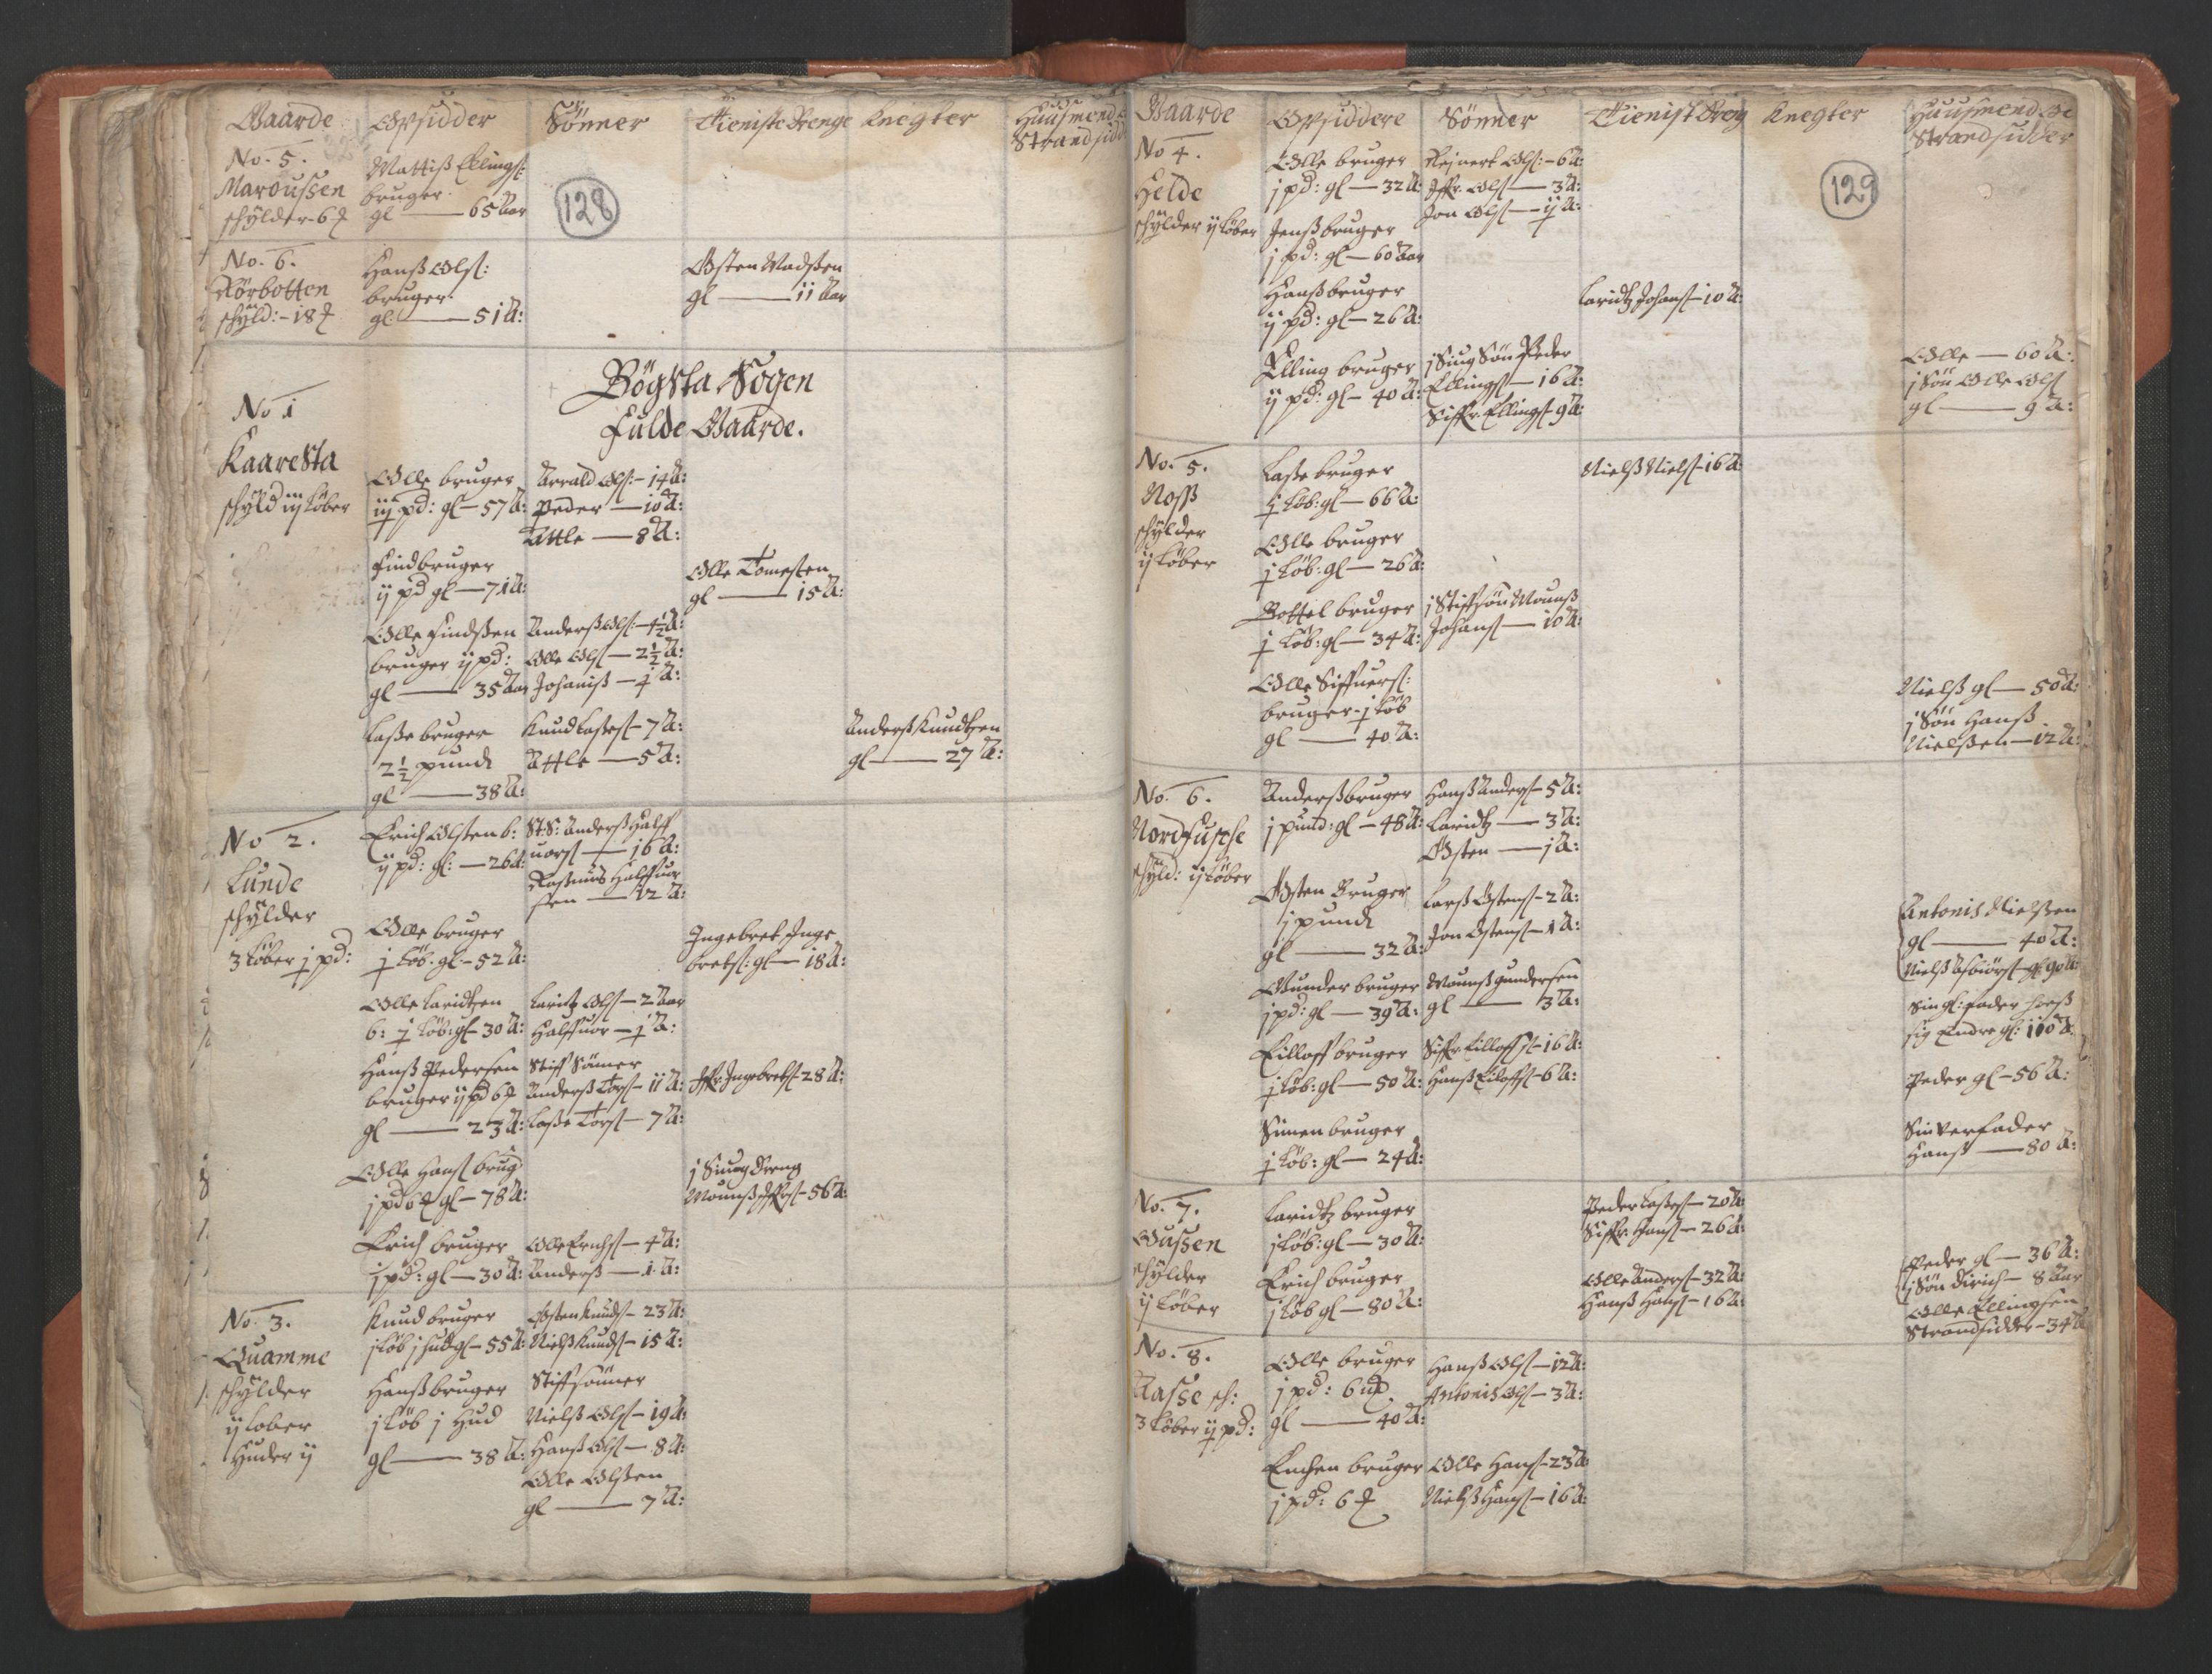 Gaarde
Opsidder
Sönner
Tieniste Drenge
Knegter
Huusmend &
Strandsidd
128
No. 5.
Maroussen
schylder - 6
Mattiß Ellings:
bruger
gl — 65 Aar
No. 6.
Rörbotten
schyld: - 18
Hanß Ols:
bruger
gl — 51 A:
Östen Madßen
gl — 11 Aar
Bögsta Sogen
Fulde Gaarde.
No 1
Kaaresta
schyld iiij Löber
Olle bruger
iij pd: gl - 57 A:
Arrald Ols: - 14 A:
Peder — 10 A:
Attle — 8 A:
Find bruger
ij pd gl — 71 A:
Olle Tomesen
gl — 15 A:
Olle Findßen
bruger ij pd:
gl — 35 Aar
Anderß Ols: - 4½ A:
Olle Ols — 2½ A:
Johaniß — ½ A:
Laße bruger
2½ pund
gl — 38 A:
Knud Laßes - 7 A:
Attle — 5 A:
Anderß Knudtzen
gl — 27 A:
No 2.
Lunde
schylder
3 Löber j pd:
Erich Olsen b:
ij pd: gl: — 26 A:
St: S: Anderß Halff
uors — 16 A:
Rasmus Halffuor
sen — 12 A:
Olle bruger
½ Löb: gl - 52 A:
Ingebret Inge
brets: gl — 18 A:
Olle Laridtzen
b: ½ Löb: gl - 30 A:
Laridtz Ols — 2 Aar
Halffuor — ½ A:
Hanß Pedersen
bruger ij pd 6
gl — 23 A:
Stiff Sönner
Anderß Tors - 11 A:
Laße Tors — 7 A:
Iffr. Ingebrets - 28 A:
Olle Hans brug
j pd 6 gl — 78 A:
j Siug Dreng
Mounß Iffrs - 56 A:
Erich bruger
j pd: gl — 30 A:
Olle Erichs — 4 A:
Anderß — 1 A:
No. 3.
Quamme
schylder
ij Löber
Huder ij
Knud bruger
j Löb j hud gl - 55 A:
Östen Knuds - 23 A:
Nielß Knuds - 15 A:
Hanß bruger
j Löb j Hud
gl — 38 A:
Stiffsönner
Nielß Ols - 19 A:
Hanß Ols — 8 A:
Olle Olsen
gl — 7 A:
Gaarde
Opsiddere
Sönner
Tienist Dreng
Knegter
Huusmend oc
Strandsidder
129
No 4.
Helde
schylder ij Löber
Olle bruger
j pd: gl — 32 A:
Reinert Ols: - 6 A:
Iffr. Ols — 3 A:
Jon Ols — ij A:
Jenß bruger
j pd: gl — 60 Aar
Hanß bruger
ij pd: gl — 26 A:
Laridtz Johans - 10 A:
Elling bruger
ij pd: gl - 40 A:
j Siug Sön Peder
Ellings — 16 A:
Siffr. Ellings - 9 A:
Olle — 60 A:
j Sön Olle Ols
gl — 9 A:
No. 5.
Noss
schylder
ij Löber
Laße bruger
½ Löb: gl — 66 A:
Nielß Niels - 16 A:
Olle bruger
½ Löb: gl — 26 A:
Bottel bruger
½ Löb: gl — 34 A:
j Stiffsön Mounß
Johans — 10 A:
Olle Siffuers:
bruger ½ Löb
gl — 40 A:
Nielß gl — 50 A:
j Sön Hanß
Nielßen — 12 A:
No. 6.
Nordfusche
schyld: ij Löber
Anderß bruger
j pund: gl — 48 A:
Hanß Anders - 5 A:
Laridtz — 3 A:
Östen — j A:
Östen Bruger
j pund
gl — 32 A:
Larß Östens - 2 A:
Jon Östens - 1 A:
Antonis Nielßen
gl — 40 A:
Nielß Asbiörs - gl 90 A:
Gunder bruger
j pd: gl — 39 A:
Mounß Gundersen
gl — 3 A:
Sin gl: fader hoeß
sig Endre gl: 100 A:
Eilloff bruger
½ Löb: gl — 50 A:
Siffr. Eilloffs - 16 A:
Hanß Eiloffs - 6 A:
Peder gl - 56 A:
Simen bruger
½ Löb: gl — 24 A:
Sin Verfader
Hanß — 80 A:
No. 7.
Oussen
schylder
ij Löber
Laridtz bruger
j Löb: gl — 30 A:
Peder Laßes — 20 A:
Siffr. Hans — 26 A:
Erich bruger
j Löb gl — 80 A:
Olle Anders — 32 A:
Hanß Hans - 16 A:
Peder gl — 36 A:
j Sön Dirich - 8 Aar
Olle Ellingsen
Strandsidder - 34 A
No. 8.
Aasse sch:
3 Löber ij pd:
Olle bruger
j pd: 6
gl — 40 A:
Hanß Ols — 12 A:
Antonis Ols - 3 A:
Enchen bruger
j pd: 6
Olle Hans - 23 A:
Nielß Hans - 16 A: